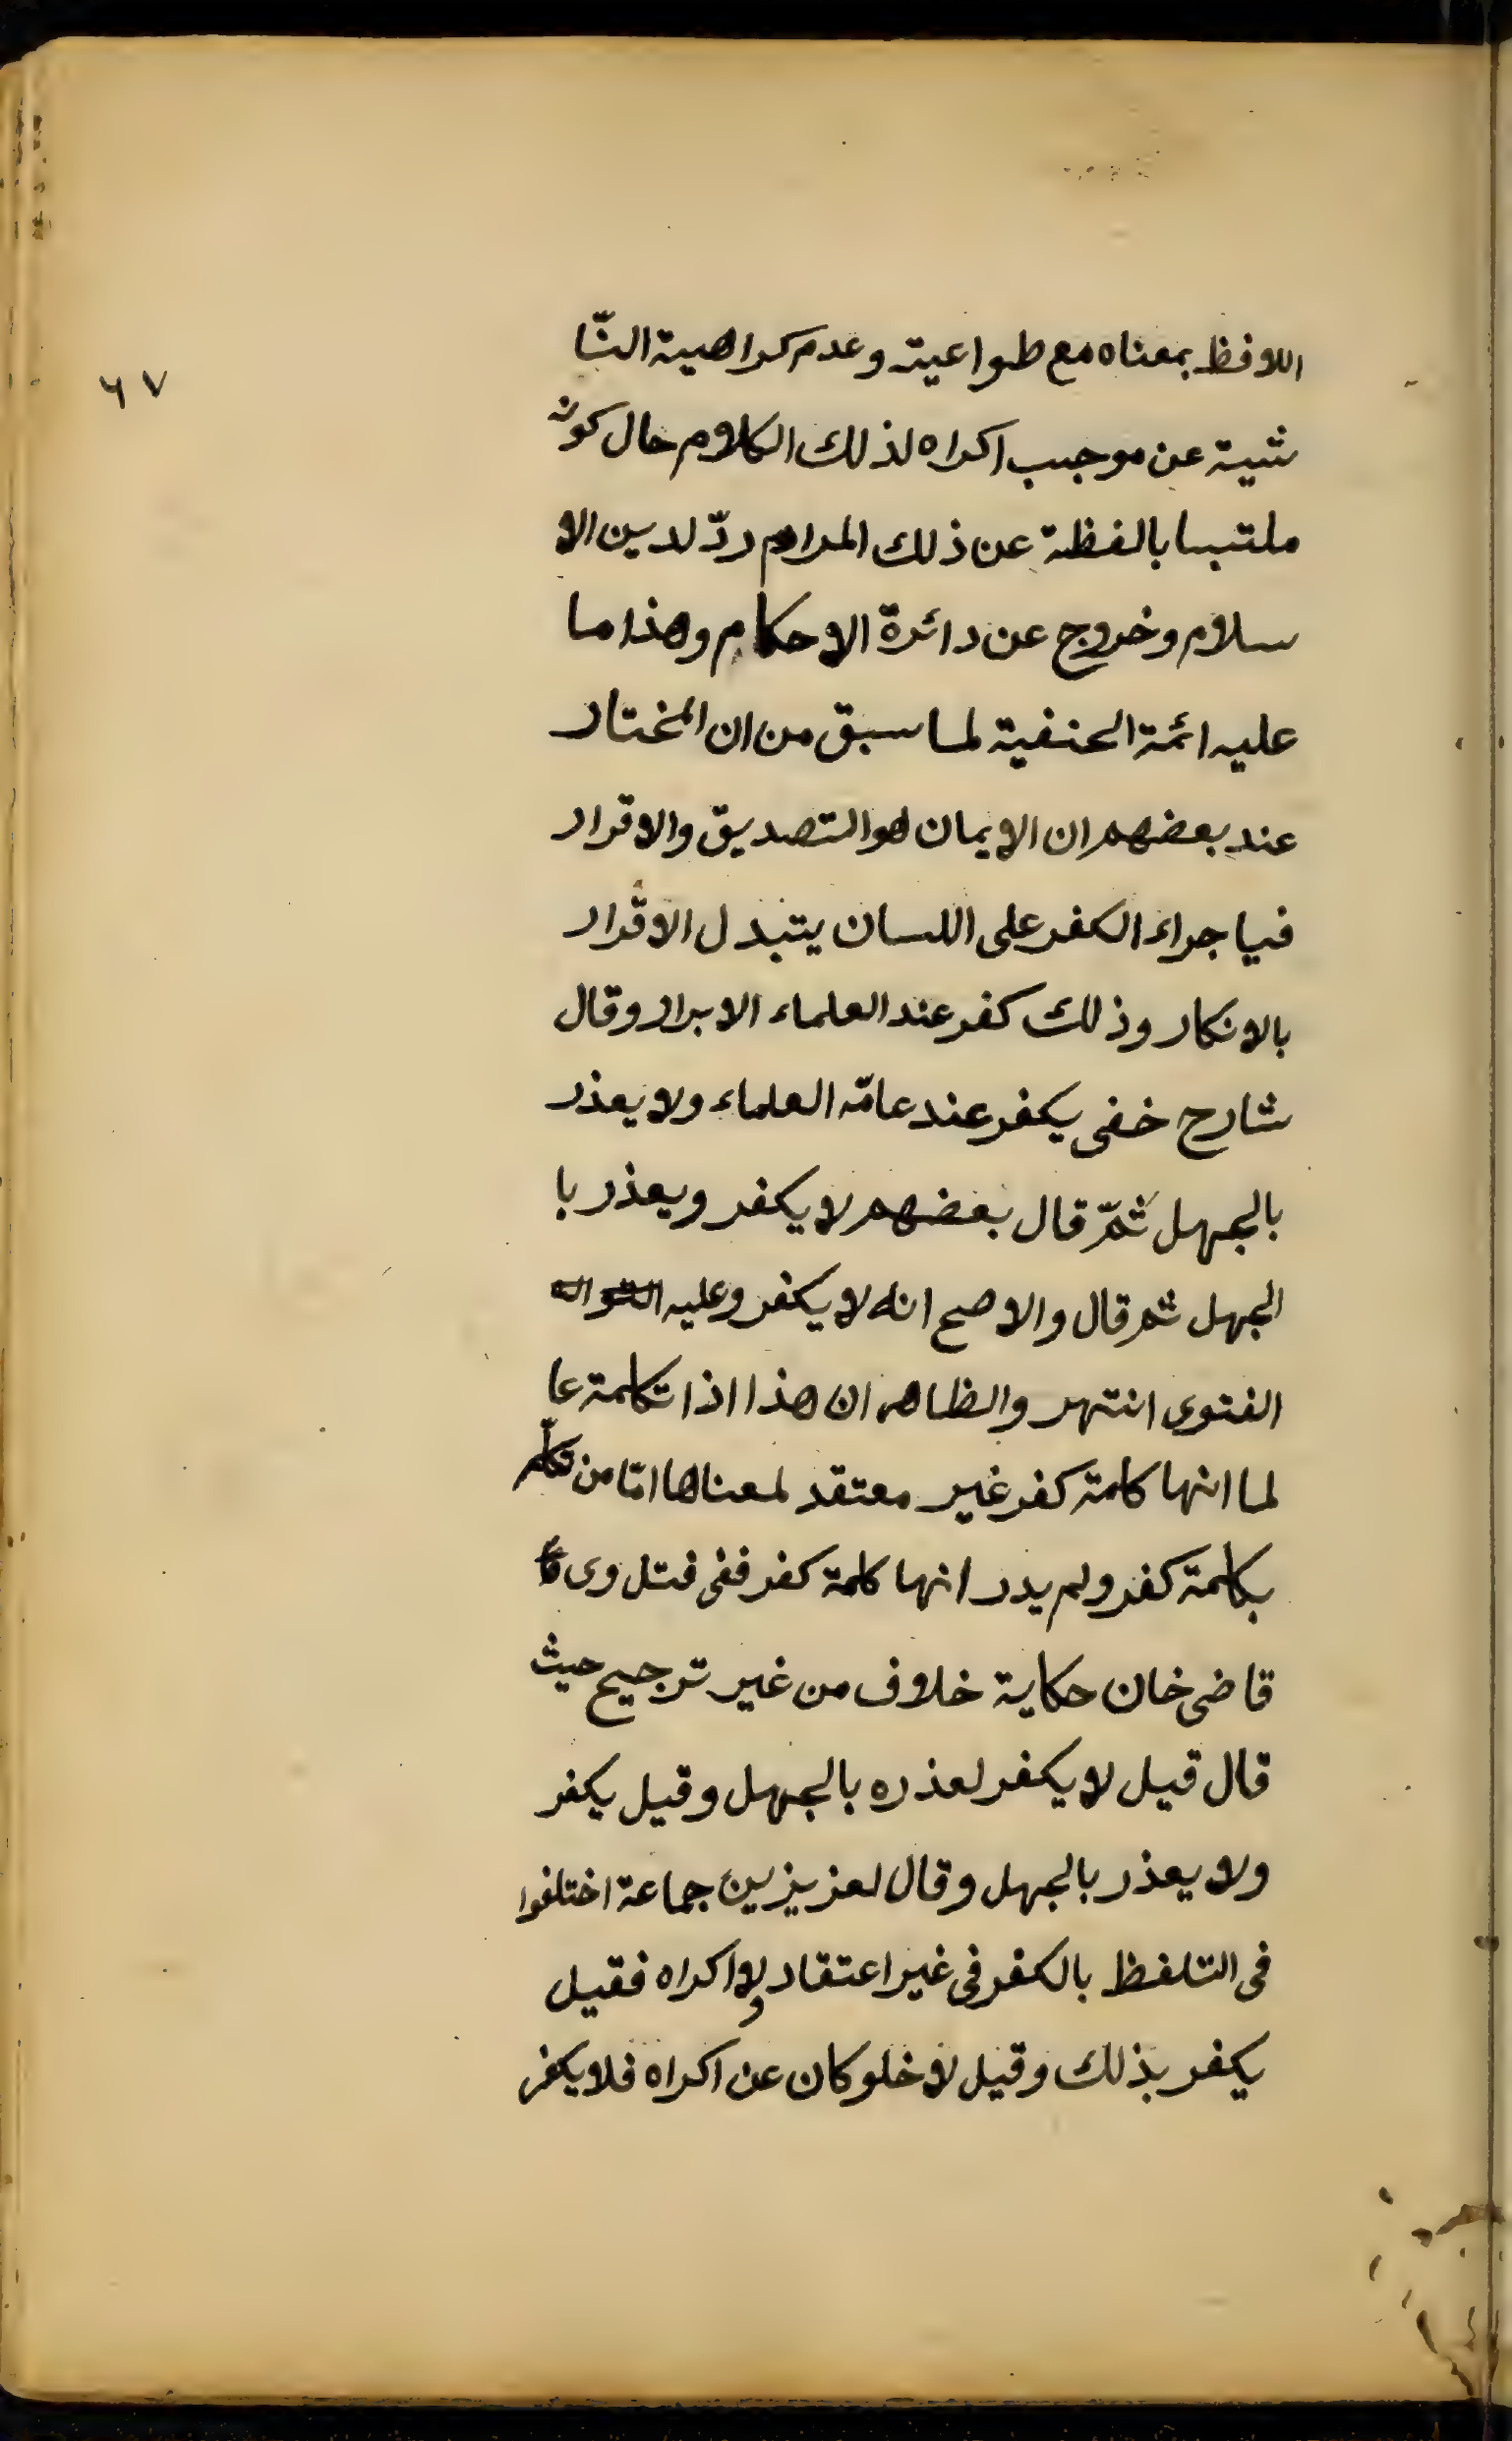 ٦٧
اللافظ بمعناه مع طواعيته وعدم كراهية النّا
شية عن موجب اكراه لذلك الكلام حال كونه
ملتبسا بالفظة عن ذلك المرام ردّ لدين الا
سلام وخروج عن دائرة الاحكام وهذا ما
عليه ائمة الحنفية لما سبق من ان المختار
عند بعضهم ان الايمان هو التصديق والاقرار
فيا جراء الكفر على اللسان يتبدل الاقرار
بالانكار وذلك كفر عند العلماء الابرار وقال
شارح خفى يكفر عند عامّه العلماء ولا يعذر
بالجهل ثمّ قال بعضهم لا يكفر ويعذر با
الجهل ثم قال والاصح انه لا يكفر وعليه
الفتوى انتهر والظاهر ان هذا اذا تكلمة عا
لما انها كلمة كفر غير معتقد لمعناها امّا من تكلّم
بكلمة كفر ولم يدر انها كلمة كفر ففى فتاوى
قاضى خان حكاية خلاف من غير ترجيح حيث
قال قيل لا يكفر لعذره بالجهل وقيل يكفر
ولا يعذر بالجهل وقال لعزيزين جماعة اختلفوا
فى التلفظ بالكفر فى غير اعتقاد ولا اكراه فقيل
يكفر بذلك وقيل لا خلو كان عن اكراه فلا يكفر